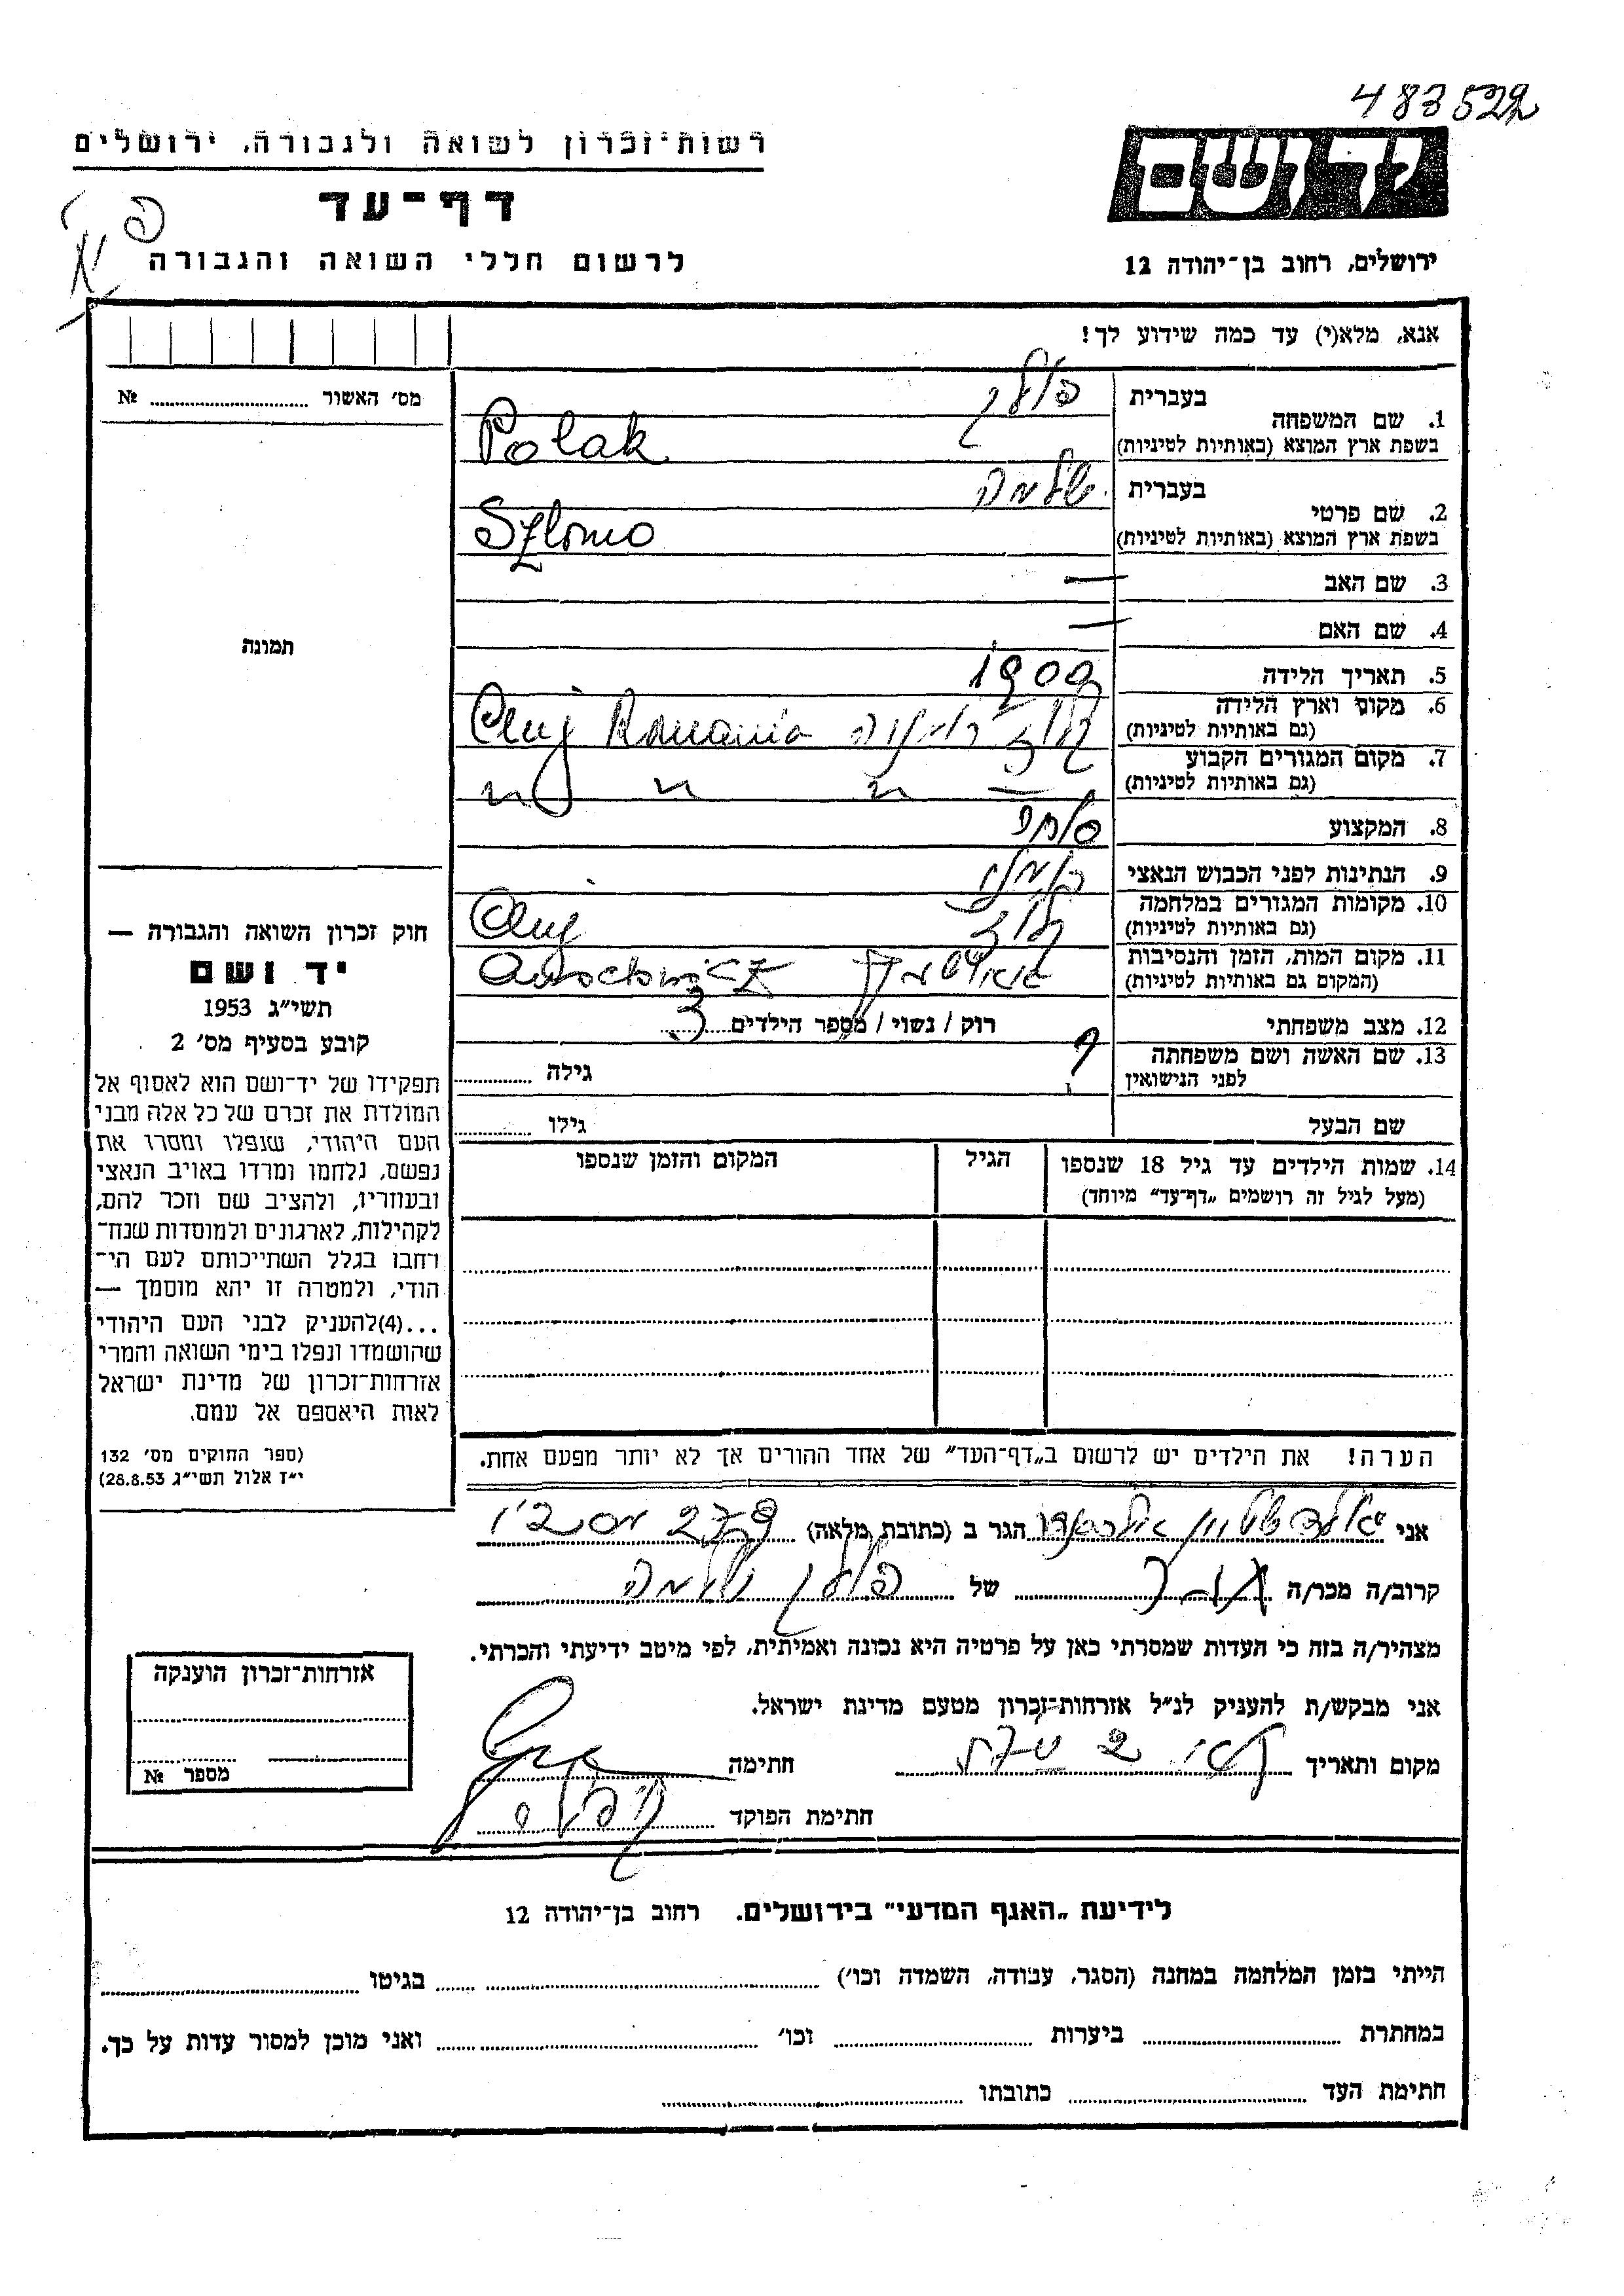 483522
רשות־זכרון לשואה ולגבורה, ירושלים
יד ושם
דף־עד
ירושלים, רחוב בן־יהודה 12
לרשום חללי השואה והגבורה
אנא, מלא(י) עד כמה שידוע לך!
מס׳ האשור ........ №
תמונה
1. שם המשפחה
בעברית פולק
בשפת ארץ המוצא (באותיות לטיניות) Polak
2. שם פרטי
בעברית שלמה
בשפת ארץ המוצא (באותיות לטיניות) Szlomo
3. שם האב —
4. שם האם —
5. תאריך הלידה 1900
6. מקום וארץ הלידה
(גם באותיות לטיניות) קלוז׳ רומניה Cluj Romania
7. מקום המגורים הקבוע
(גם באותיות לטיניות) — " " "
8. המקצוע סוחר
9. הנתינות לפני הכבוש הנאצי רומני
10. מקומות המגורים במלחמה
(גם באותיות לטיניות) קלוז׳ Cluj
11. מקום המות, הזמן והנסיבות
(המקום גם באותיות לטיניות)
12. מצב משפחתי רוק / נשוי / מספר הילדים 3
13. שם האשה ושם משפחתה
לפני הנישואין ? גילה ........
שם הבעל גילו ........
14. שמות הילדים עד גיל 18 שנספו
(מעל לגיל זה רושמים „דף־עד״ מיוחד)
הגיל
המקום והזמן שנספו
חוק זכרון השואה והגבורה —
יד ושם
תשי״ג 1953
קובע בסעיף מס׳ 2
תפקידו של יד־ושם הוא לאסוף אל
המולדת את זכרם של כל אלה מבני
העם היהודי, שנפלו ומסרו את
נפשם, נלחמו ומרדו באויב הנאצי
ובעוזריו, ולהציב שם וזכר להם,
לקהילות, לארגונים ולמוסדות שנח־
רחבו בגלל השתייכותם לעם הי־
הודי, ולמטרה זו יהא מוסמך —
...(4)להעניק לבני העם היהודי
שהושמדו ונפלו בימי השואה והמרי
אזרחות־זכרון של מדינת ישראל
לאות היאספם אל עמם.
(ספר החוקים מס׳ 132
י״ז אלול תשי״ג 28.8.53)
הערה! את הילדים יש לרשום ב„דף־העד״ של אחד ההורים אך לא יותר מפעם אחת.
אני הגר ב (כתובת מלאה)
קרוב/ה מכר/ה של פולק שלמה
מצהיר/ה בזה כי העדות שמסרתי כאן על פרטיה היא נכונה ואמיתית, לפי מיטב ידיעתי והכרתי.
אני מבקש/ת להעניק לנ״ל אזרחות־זכרון מטעם מדינת ישראל.
מקום ותאריך חתימה
חתימת הפוקד
אזרחות־זכרון הוענקה
מספר №
לידיעת „האגף המדעי״ בירושלים. רחוב בן־יהודה 12
הייתי בזמן המלחמה במחנה (הסגר, עבודה, השמדה וכו׳) ........ בגיטו ........
במחתרת ........ ביערות ........ וכו׳ ........ ואני מוכן למסור עדות על כך.
חתימת העד ........ כתובתו ........